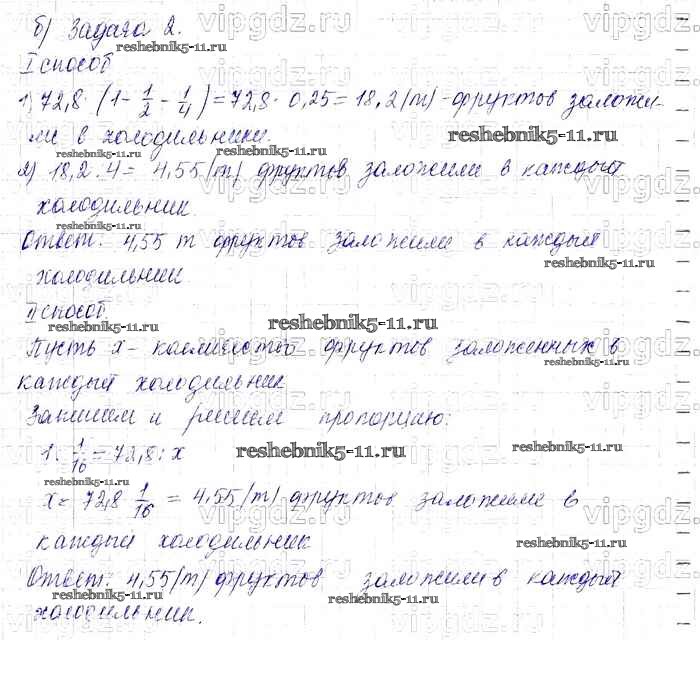 б) Задача 2.
I способ
1) 72,8 · (1 - 1/2 - 1/4) = 72,8 · 0,25 = 18,2 (т) - фруктов заложи-
ли в холодильники.
2) 18,2 : 4 = 4,55 (т) фруктов заложили в каждый
холодильник.
Ответ: 4,55 т фруктов заложили в каждый
холодильник
II способ.
Пусть x - количество фруктов заложенных в
каждый холодильник
Запишем и решим пропорцию:
1 : 1/16 = 72,8 : x
x = 72,8 1/16 = 4,55 (т) фруктов заложили в
каждый холодильник
Ответ: 4,55 (т) фруктов заложили в каждый
холодильник.
vipgdz.ru
reshebnik5-11.ru